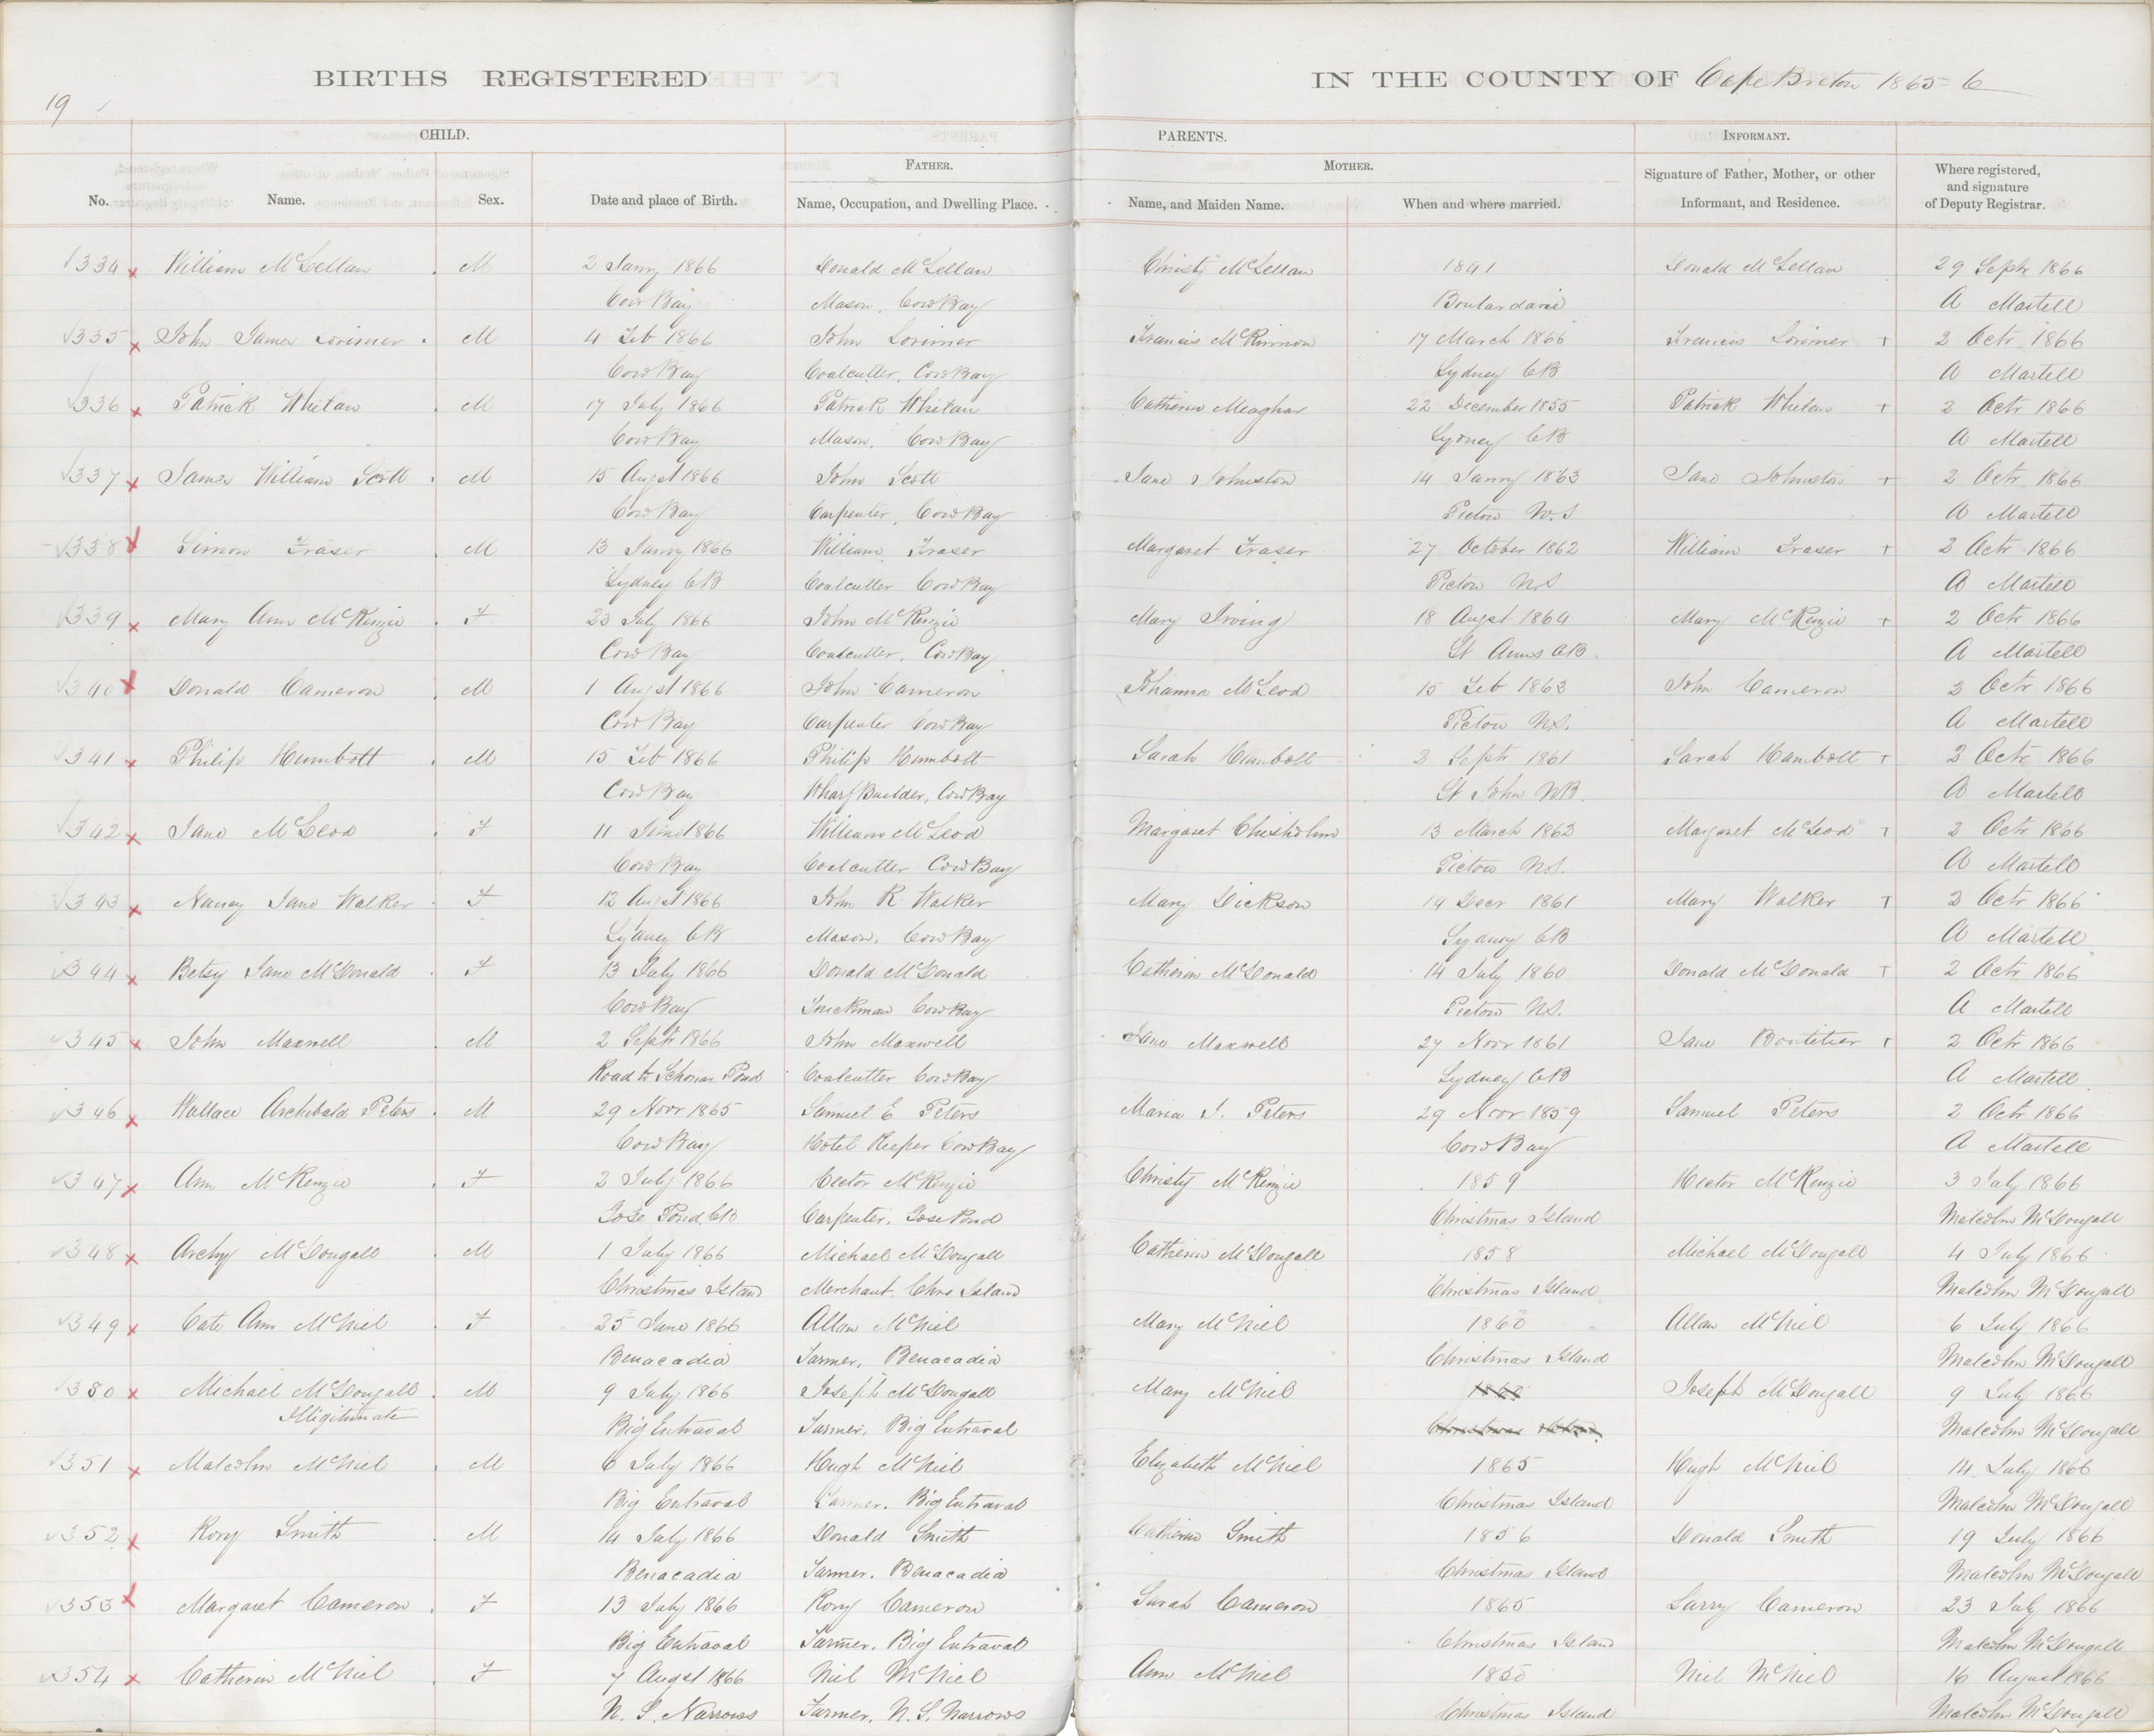 BIRTHS REGISTERED IN THE COUNTY OF Cape Breton 1865-6
19
CHILD. PARENTS. INFORMANT.
FATHER. MOTHER.
No. Name. Sex. Date and place of Birth. Name, Occupation, and Dwelling Place. Name, and Maiden Name. When and where married. Signature of Father, Mother, or other Informant, and Residence. Where registered, and signature of Deputy Registrar.
334 William McLellan M 2 Jany 1866 Donald McLellan Christy McLellan 1841 Donald McLellan 29 Septr 1866
Cow Bay Mason, Cow Bay Boulardarie A Martell
335 John James Lorimer M 4 Feb 1866 John Lorimer Francis McKinnon 17 March 1866 Francis Lorimer + 2 Octr 1866
Cow Bay Coalcutter, Cow Bay Sydney CB A Martell
336 Patrick Whelan M 17 July 1866 Patrick Whelan Catherin Meaghar 22 December 1855 Patrick Whelan + 2 Octr 1866
Cow Bay Mason, Cow Bay Sydney CB A Martell
337 James William Scott M 15 Augst 1866 John Scott Jane Johnston 14 Janny 1863 Jane Johnston + 2 Octr 1866
Cow Bay Carpenter, Cow Bay Pictou N.S A Martell
338 Simon Fraser M 13 Janny 1866 William Fraser Margaret Fraser 27 October 1862 William Fraser + 2 Octr 1866
Sydney CB Coalcutter Cow Bay Pictou NS A Martell
339 Mary Ann McKenzie F 23 July 1866 John McKenzie Mary Irving 18 Augst 1864 Mary McKenzie + 2 Octr 1866
Cow Bay Coalcutter, Cow Bay St Anns CB. A Martell
340 Donald Cameron M 1 Augst 1866 John Cameron Johanna McLeod 15 Feb 1863 John Cameron 2 Octr 1866
Cow Bay Carpenter Cow Bay Pictou N.S. A Martell
341 Philip Humbolt M 15 Feb 1866 Philip Humbolt Sarah Humbolt 2 Septr 1861 Sarah Hambolt + 2 Octr 1866
Cow Bay Wharf Builder, Cow Bay St John NB. A Martell
342 Jane McLeod F 11 June 1866 William McLeod Margaret Chisholm 13 March 1862 Margaret McLeod + 2 Octr 1866
Cow Bay Coalcutter Cow Bay Pictou N.S. A Martell
343 Nancy Jane Walker F 12 Augst 1866 John R Walker Mary Dickson 14 Decr 1861 Mary Walker + 2 Octr 1866
Sydney CB Mason, Cow Bay Sydney CB A Martell
344 Betsy Jane McDonald F 13 July 1866 Donald McDonald Catherin McDonald 14 July 1860 Donald McDonald + 2 Octr 1866
Cow Bay Truckman Cow Bay Pictou N.S. A Martell
345 John Maxwell M 2 Septr 1866 John Maxwell Jane Maxwell 27 Novr 1861 Jane Boutilier + 2 Octr 1866
Road to Schoner Pond Coalcutter Cow Bay Sydney CB A Martell
346 Wallace Archibald Peters M 29 Novr 1865 Samuel E Peters Maria J. Peters 29 Novr 1859 Samuel Peters 2 Octr 1866
Cow Bay Hotel Keeper Cow Bay Cow Bay A Martell
347 Ann McKenzie F 2 July 1866 Hector McKenzie Christy McKenzie 1859 Hector McKenzie 3 July 1866
Gose Pond, CB Carpenter, Gose Pond Christmas Island Malcolm McDougall
348 Archy McDougall M 1 July 1866 Michael McDougall Catherin McDougall 1858 Michael McDougall 4 July 1866
Christmas Island Merchant, Chrs Island Christmas Island Malcolm McDougall
349 Cate Ann McNiel F 25 June 1866 Allan McNiel Mary McNiel 1860 Allan McNiel 6 July 1866
Benacadia Farmer, Benacadia Christmas Island Malcolm McDougall
350 Michael McDougall M 9 July 1866 Joseph McDougall Mary McNiel Joseph McDougall 9 July 1866
Illigitimate Big Entraval Farmer, Big Entraval Christmas Island Malcolm McDougall
351 Malcolm McNiel M 6 July 1866 Hugh McNiel Elizabeth McNiel 1865 Hugh McNiel 14 July 1866
Big Entraval Farmer, Big Entraval Christmas Island Malcolm McDougall
352 Rory Smith M 14 July 1866 Donald Smith Catherin Smith 1856 Donald Smith 19 July 1866
Benacadia Farmer, Benacadia Christmas Island Malcolm McDougall
353 Margaret Cameron F 13 July 1866 Rory Cameron Sarah Cameron 1865 Larry Cameron 23 July 1866
Big Entraval Farmer, Big Entraval Christmas Island Malcolm McDougall
354 Catherin McNiel F 7 Augst 1866 Niel McNiel Ann McNiel 1850 Niel McNiel 16 August 1866
N. S. Narrows Farmer, N. S. Narrows Christmas Island Malcolm McDougall